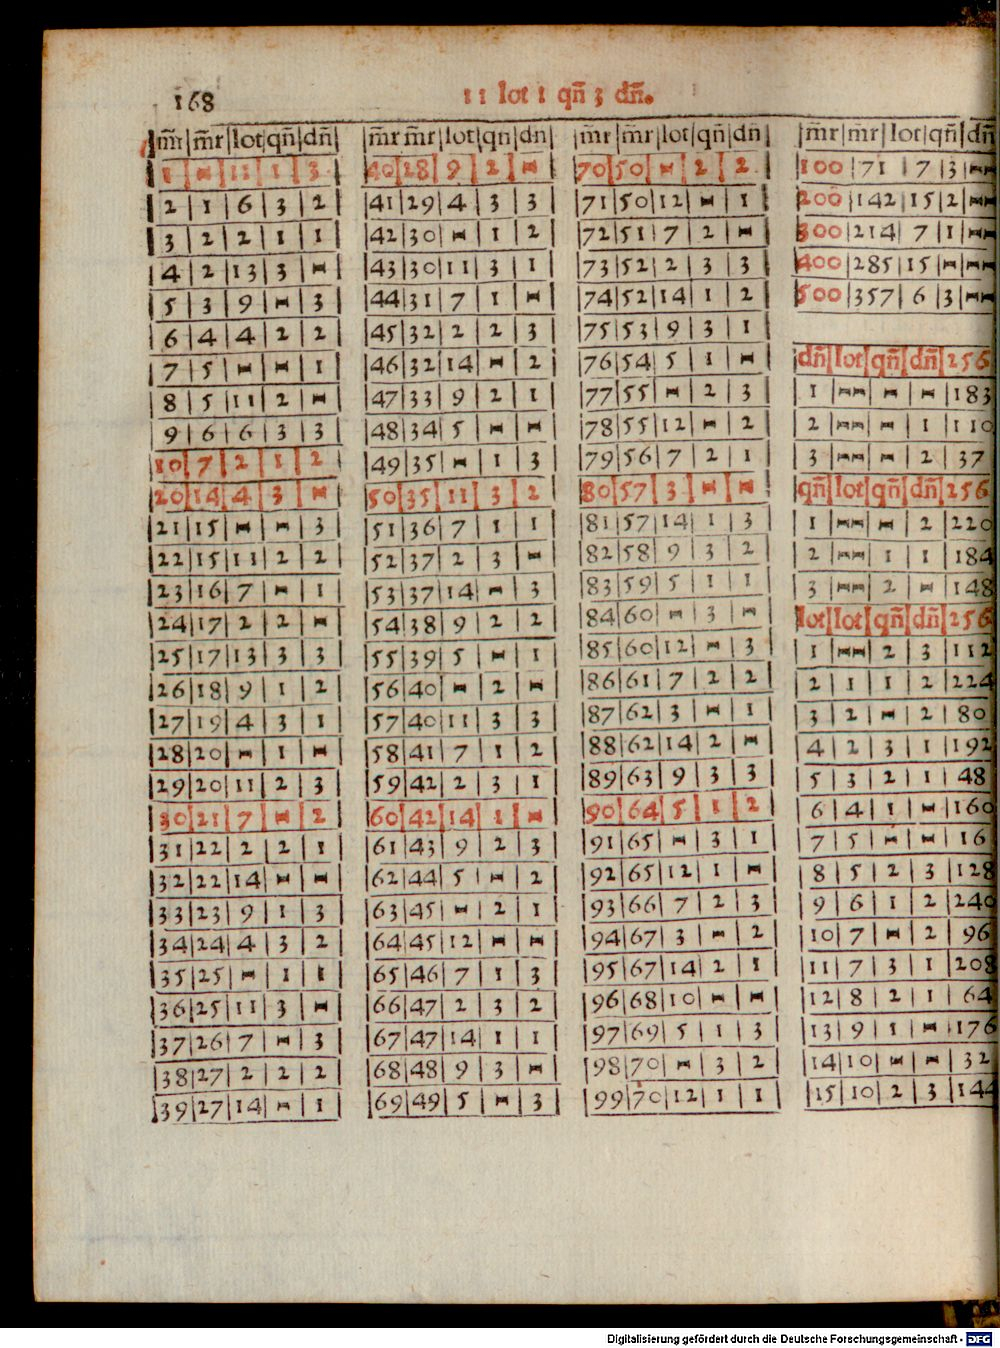 168
11 lot 1 qñ 3 dñ.
m̃r|m̃r|lot|qñ|dñ
1|–|11|1|3
2|1|6|3|2
3|2|2|1|1
4|2|13|3|–
5|3|9|–|3
6|4|4|2|2
7|5|–|–|1
8|5|11|2|–
9|6|6|3|3
10|7|2|1|2
20|14|4|3|–
21|15|–|–|3
22|15|11|2|2
23|16|7|–|1
24|17|2|2|–
25|17|13|3|3
26|18|9|1|2
27|19|4|3|1
28|20|–|1|–
29|20|11|2|3
30|21|7|–|2
31|22|2|2|1
32|22|14|–|–
33|23|9|1|3
34|24|4|3|2
35|25|–|1|1
36|25|11|3|–
37|26|7|–|3
38|27|2|2|2
39|27|14|–|1
m̃r m̃r|lot|qn|dn
40|28|9|2|–
41|29|4|3|3
42|30|–|1|2
43|30|11|3|1
44|31|7|1|–
45|32|2|2|3
46|32|14|–|2
47|33|9|2|1
48|34|5|–|–
49|35|–|1|3
50|35|11|3|2
51|36|7|1|1
52|37|2|3|–
53|37|14|–|3
54|38|9|2|2
55|39|5|–|1
56|40|–|2|–
57|40|11|3|3
58|41|7|1|2
59|42|2|3|1
60|42|14|1|–
61|43|9|2|3
62|44|5|–|2
63|45|–|2|1
64|45|12|–|–
65|46|7|1|3
66|47|2|3|2
67|47|14|1|1
68|48|9|3|–
69|49|5|–|3
m̃r|m̃r|lot|qñ|dñ
70|50|–|2|2
71|50|12|–|1
72|51|7|2|–
73|52|2|3|3
74|52|14|1|2
75|53|9|3|1
76|54|5|1|–
77|55|–|2|3
78|55|12|–|2
79|56|7|2|1
80|57|3|–|–
81|57|14|1|3
82|58|9|3|2
83|59|5|1|1
84|60|–|3|–
85|60|12|–|3
86|61|7|2|2
87|62|3|–|1
88|62|14|2|–
89|63|9|3|3
90|64|5|1|2
91|65|–|3|1
92|65|12|1|–
93|66|7|2|3
94|67|3|–|2
95|67|14|2|1
96|68|10|–|–
97|69|5|1|3
98|70|–|3|2
99|70|12|1|1
m̃r|m̃r|lot|qñ|dñ
100|71|7|3|–
200|142|15|2|–
300|214|7|1|–
400|285|15|–|–
500|357|6|3|–
dñ|lot|qñ|dñ|256
1|–|–|–|183
2|–|–|1|110
3|–|–|2|37
qñ|lot|qñ|dñ|256
1|–|–|2|220
2|–|1|1|184
3|–|2|–|148
lot|lot|qñ|dñ|256
1|–|2|3|112
2|1|1|2|224
3|2|–|2|80
4|2|3|1|192
5|3|2|1|48
6|4|1|–|160
7|5|–|–|16
8|5|2|3|128
9|6|1|2|240
10|7|–|2|96
11|7|3|1|208
12|8|2|1|64
13|9|1|–|176
14|10|–|–|32
15|10|2|3|144
Digitalisierung gefördert durch die Deutsche Forschungsgemeinschaft - DFG